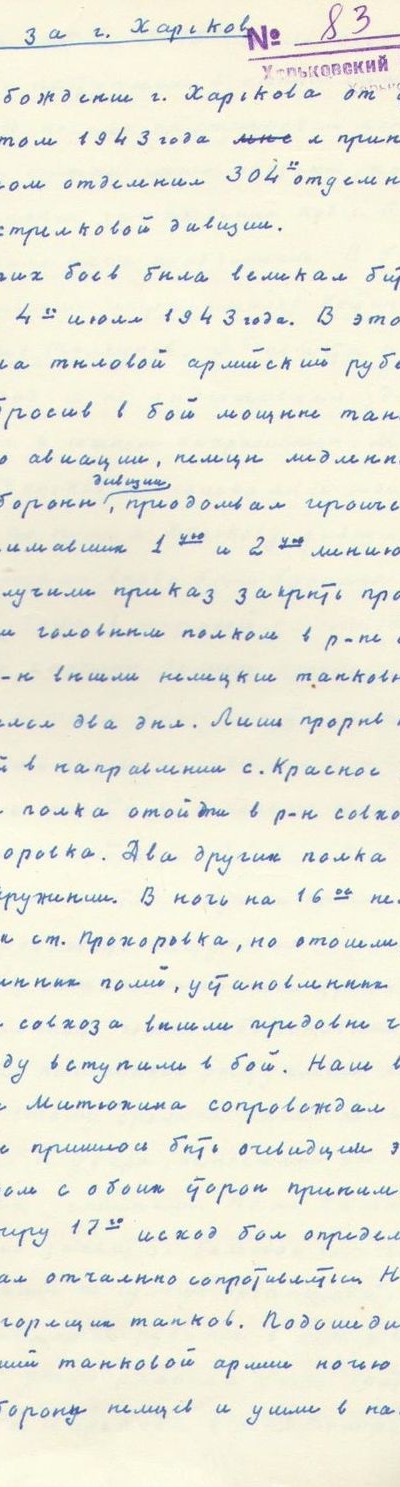 за г. Харьков
№ 83
Харьковский
бождение г. Харькова от
том 1943 года мне я прин
ом отделнии 304ой отделн
стрелковой дивизии.
их боев была великая бит
4го июля 1943 года. В это
на тыловой армейский рубе
бросив в бой мощные тан
о авиации, немцы медленн
дивизии
бороны, преодолвая героиче
имавших 1ую и 2ую линию
лучили приказ закрыть про
и головным полком в р-не
-н вышли немецкие танков
ался два дня. Лишь прорыв
й в направлении с. Красное
полка отойти в р-н совхо
оровка. Два других полка
кружении. В ночь на 16ое не
к ст. Прохоровка, но отошли
инных полей, установленных
совхоза вышли передовые ч
ду вступили в бой. Наш в
Митюхина сопровождал
пришлось быть очевидцем э
ом с обоих сторон приним
черу 17го исход боя определ
ая отчаянно сопротивляться Н
горящих танков. Подошеди
ший танковой армии ночью
борону немцев и ушли в на